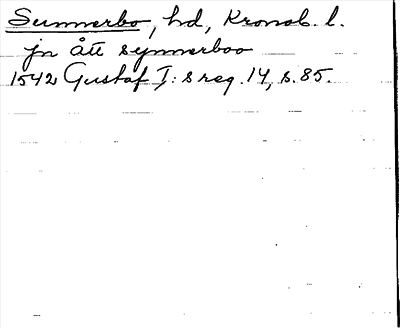 Sunnerbo, hd, Kronob. l.
jn ått synnerboo
1542 Gustaf I:s reg. 14, s. 85.